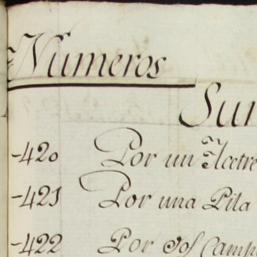 Numeros
Sum
-420 Por un Acetre
-421 Por una Pila
-422 Por dos Camp